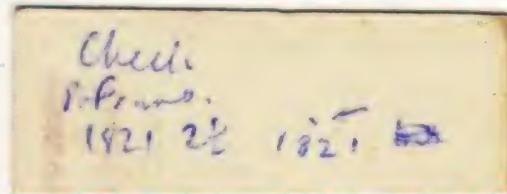 Check
1821 2½ 1821